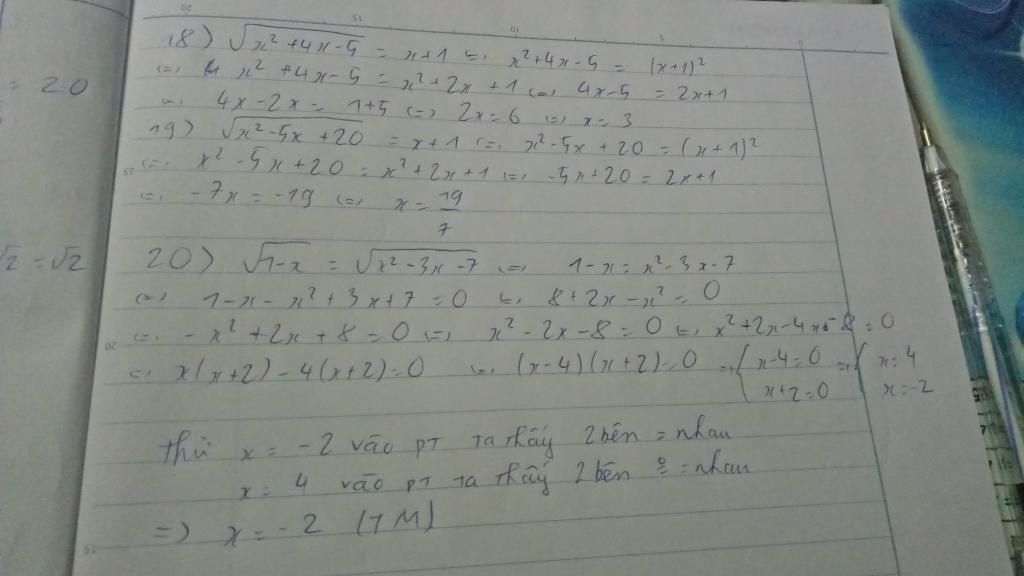 = 20
√2 = √2
18) √(x² + 4x - 5) = x + 1 <=> x² + 4x - 5 = (x+1)²
<=> x² + 4x - 5 = x² + 2x + 1 <=> 4x - 5 = 2x + 1
<=> 4x - 2x = 1 + 5 <=> 2x = 6 <=> x = 3
19) √(x² - 5x + 20) = x + 1 <=> x² - 5x + 20 = (x+1)²
<=> x² - 5x + 20 = x² + 2x + 1 <=> -5x + 20 = 2x + 1
<=> -7x = -19 <=> x = 19/7
20) √(1-x) = √(x² - 3x - 7) <=> 1 - x = x² - 3x - 7
<=> 1 - x - x² + 3x + 7 = 0 <=> 8 + 2x - x² = 0
<=> -x² + 2x + 8 = 0 <=> x² - 2x - 8 = 0 <=> x² + 2x - 4x - 8 = 0
<=> x(x+2) - 4(x+2) = 0 <=> (x-4)(x+2) = 0 => { x-4=0 => { x=4
x+2=0 x=-2
Thử x = -2 vào pT ta thấy 2 bên = nhau
x = 4 vào pT ta thấy 2 bên = nhau
=> x = -2 (TM)